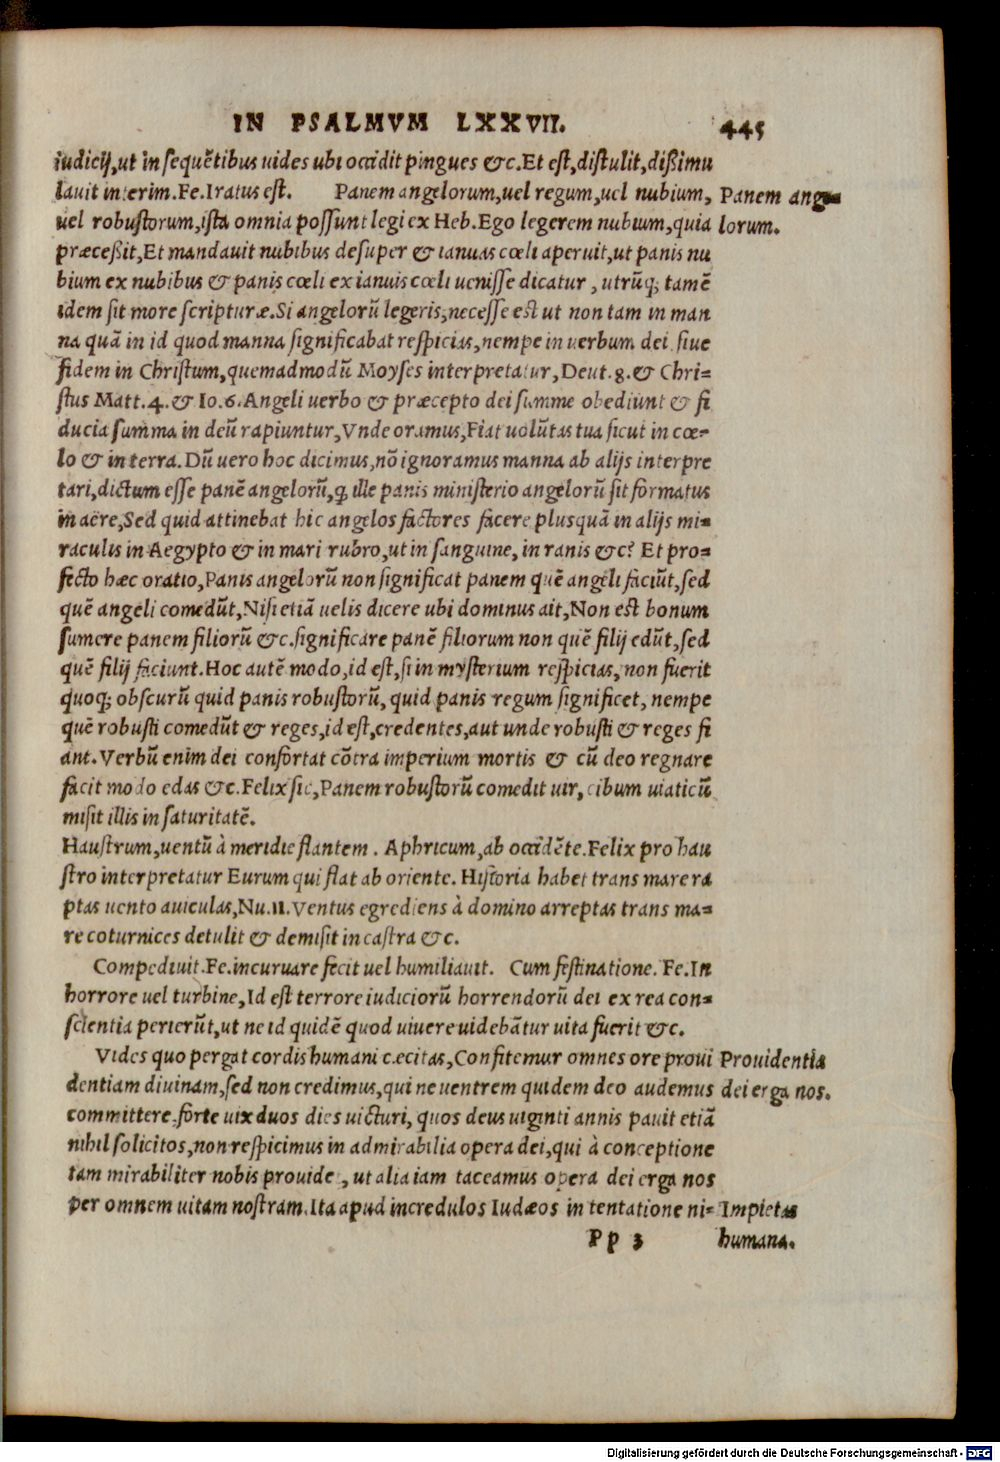 IN PSALMVM LXXVII. 445
iudicij,ut in sequẽtibus uides ubi occidit pingues &c.Et est,distulit,dißimu
lauit interim.Fe.Iratus est. Panem angelorum,uel regum,uel nubium, Panem ange
uel robustorum,ista omnia possunt legi ex Heb.Ego legerem nubium,quia lorum.
præceßit,Et mandauit nubibus desuper & ianuas cœli aperuit,ut panis nu
bium ex nubibus & panis cœli ex ianuis cœli uenisse dicatur, utrũq; tamẽ
idem sit more scripturæ.Si angelorũ legeris,necesse est ut non tam in man
na quã in id quod manna significabat respicias,nempe in uerbum dei siue
fidem in Christum,quemadmodũ Moyses interpretatur,Deut.8.& Chri-
stus Matt.4.& Io.6.Angeli uerbo & præcepto dei summe obediunt & fi
ducia summa in deũ rapiuntur,Vnde oramus,Fiat uolũtas tua sicut in cœ-
lo & in terra.Dũ uero hoc dicimus,nõ ignoramus manna ab alijs interpre
tari,dictum esse panẽ angelorũ,q; ille panis ministerio angelorũ sit formatus
in aëre,Sed quid attinebat hic angelos factores facere plusquã in alijs mi-
raculis in Aegypto & in mari rubro,ut in sanguine,in ranis &c? Et pro-
fecto hæc oratio,Panis angelorũ non significat panem quẽ angeli faciũt,sed
quẽ angeli comedũt,Nisi etiã uelis dicere ubi dominus ait,Non est bonum
sumere panem filiorũ &c.significare panẽ filiorum non quẽ filij edũt,sed
quẽ filij faciunt.Hoc autẽ modo,id est,si in mysterium respicias,non fuerit
quoq; obscurũ quid panis robustorũ,quid panis regum significet,nempe
quẽ robusti comedũt & reges,id est,credentes,aut unde robusti & reges fi
ant.Verbũ enim dei confortat cõtra imperium mortis & cũ deo regnare
facit modo edas &c.Felix sic,Panem robustorũ comedit uir,cibum uiaticũ
misit illis in saturitatẽ.
Haustrum,uentũ à meridie flantem. Aphricum,ab occidẽte.Felix pro hau
stro interpretatur Eurum qui flat ab oriente.Historia habet trans mare ra
ptas uento auiculas,Nu.11.Ventus egrediens à domino arreptas trans ma-
re coturnices detulit & demisit in castra &c.
Compediuit.Fe.incuruare fecit uel humiliauit. Cum festinatione.Fe.In
horrore uel turbine,Id est terrore iudiciorũ horrendorũ dei ex rea con-
scientia perierũt,ut ne id quidẽ quod uiuere uidebãtur uita fuerit &c.
Vides quo pergat cordis humani cæcitas,Confitemur omnes ore proui Prouidentia
dentiam diuinam,sed non credimus,qui ne uentrem quidem deo audemus dei erga nos.
committere,forte uix duos dies uicturi, quos deus uiginti annis pauit etiã
nihil solicitos,non respicimus in admirabilia opera dei,qui à conceptione
tam mirabiliter nobis prouide, ut alia iam taceamus opera dei erga nos
per omnem uitam nostram.Ita apud incredulos Iudæos in tentatione ni- Impietas
Pp 3 humana.
Digitalisierung gefördert durch die Deutsche Forschungsgemeinschaft - DFG